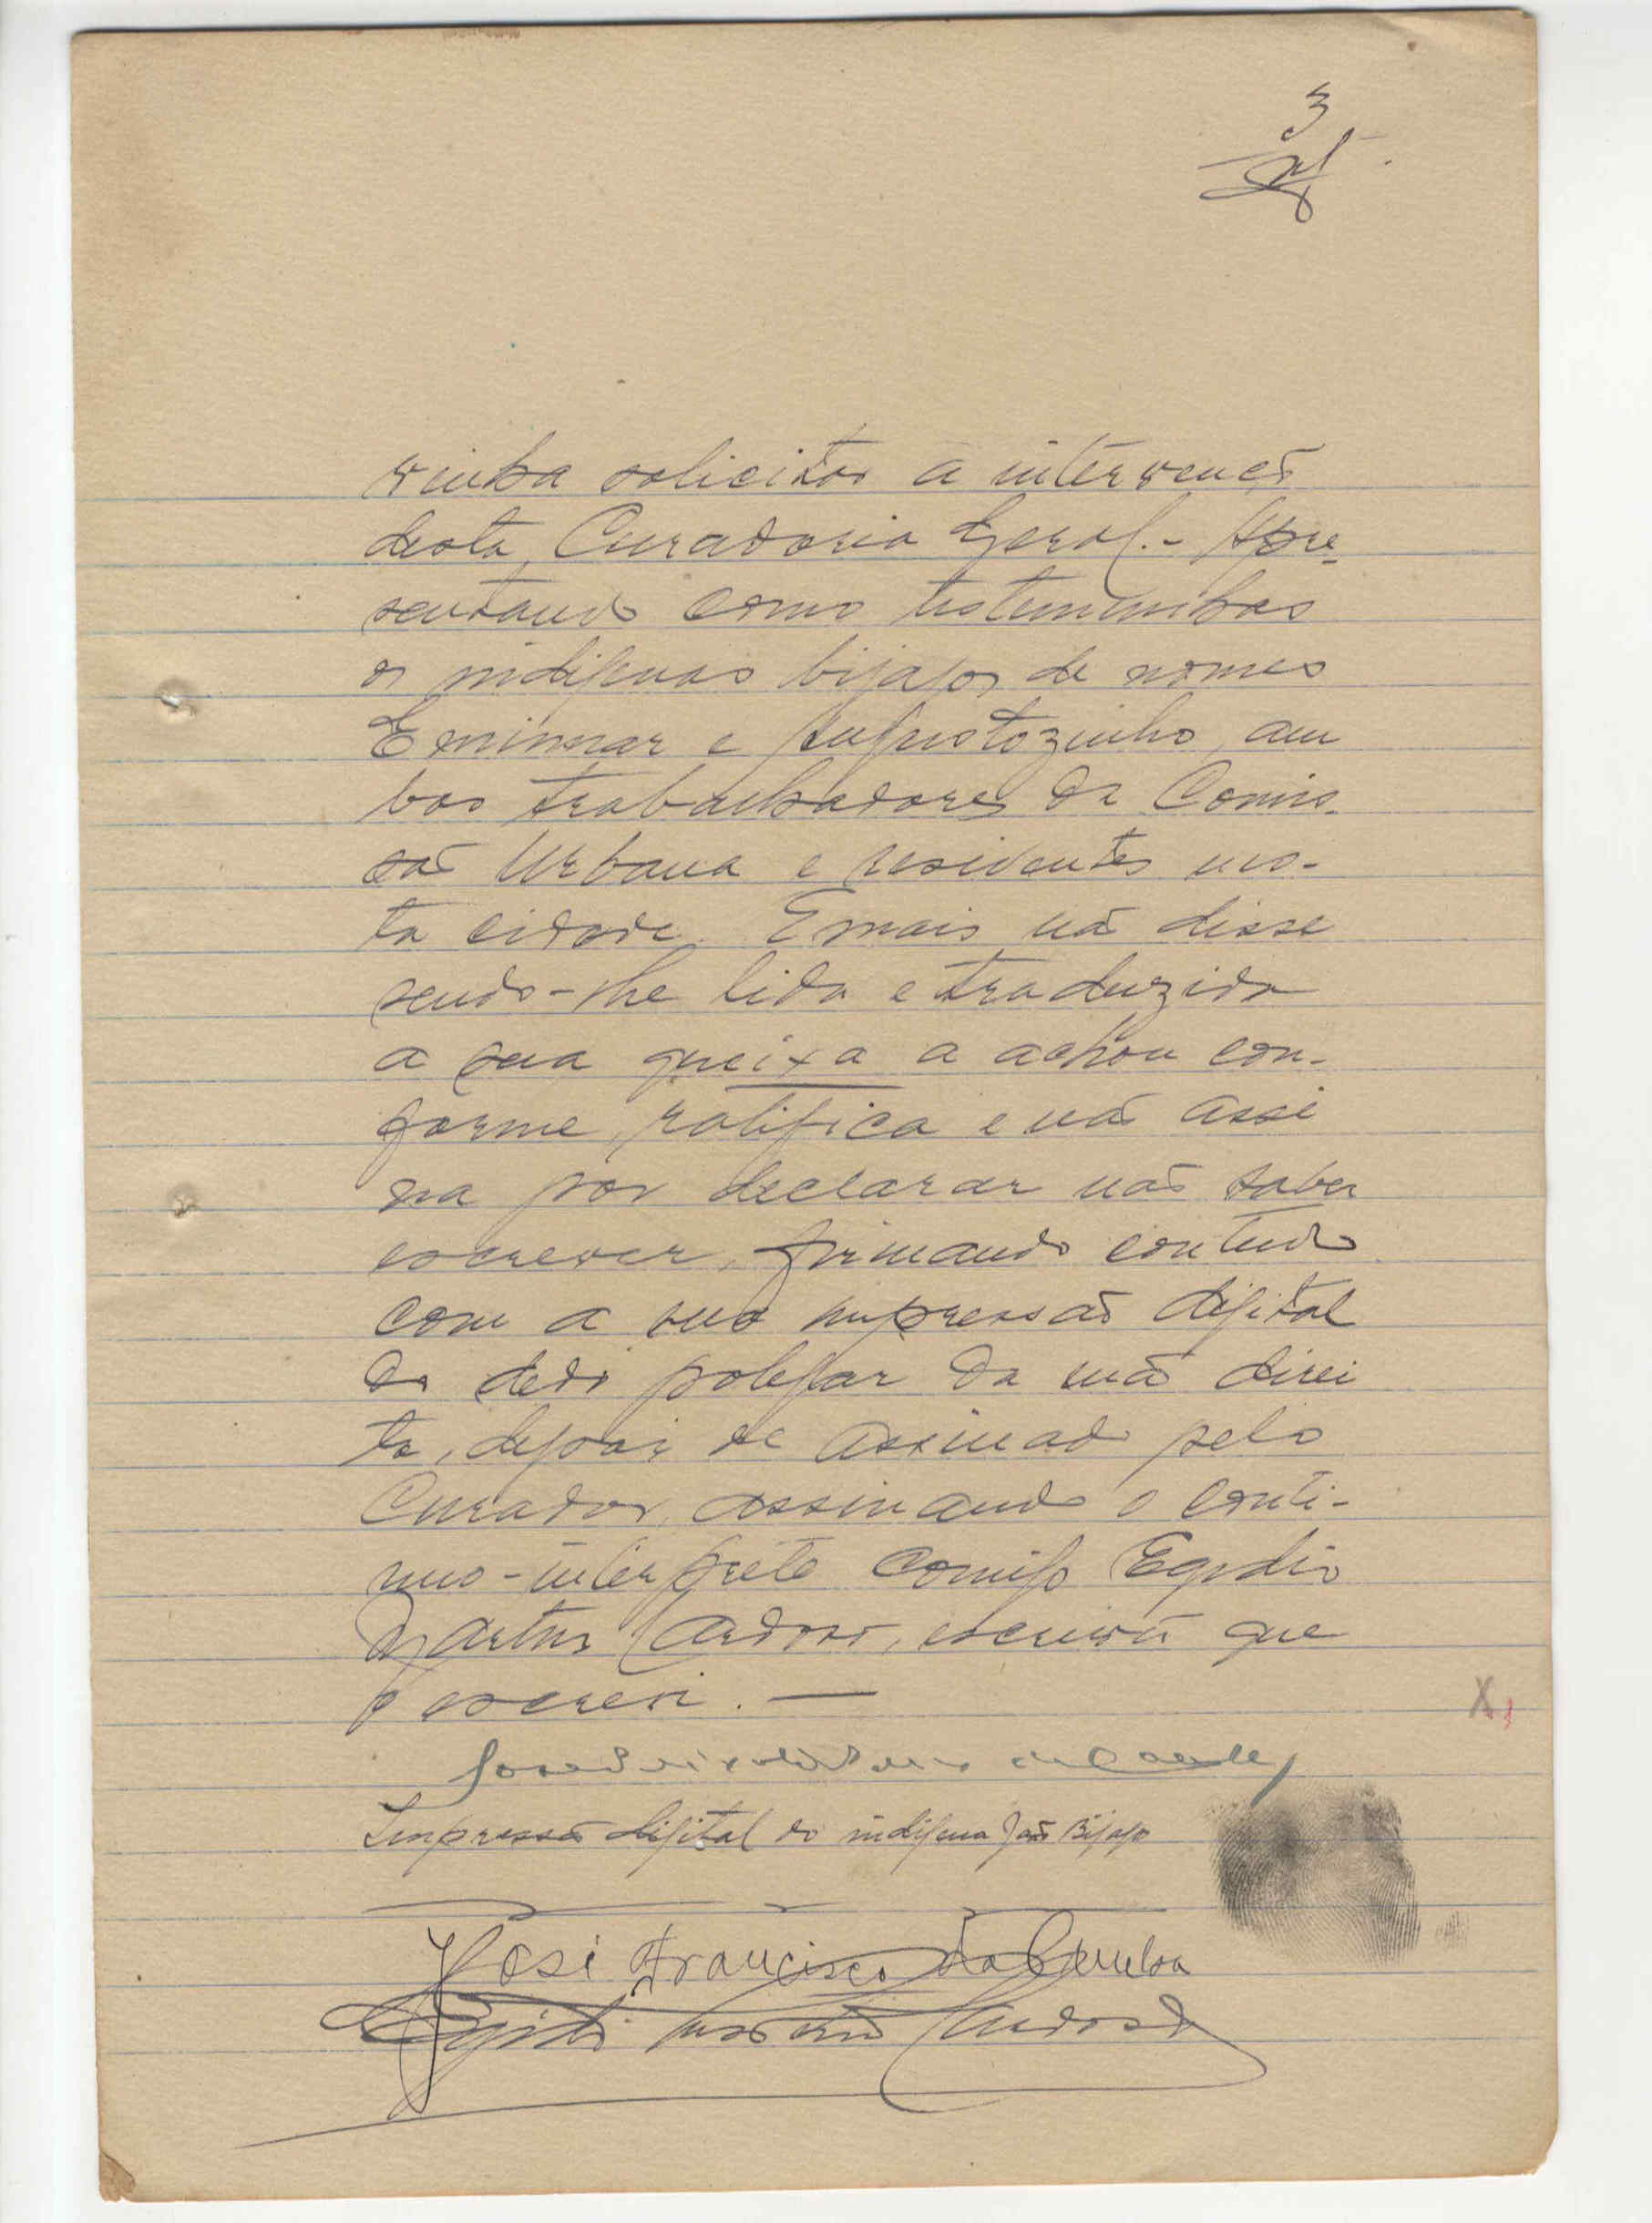 3
vinha solicitar a intervenção
desta Curadoria Geral.- Apre-
sentando como testemunhas
os indígenas bijagos de nomes
Eminmar e Augustozinho, am
bos trabalhadores da Comis-
são Urbana e residentes nes-
ta cidade. E mais não disse
sendo-lhe lida e traduzida
a sua queixa a achou con-
forme, ratifica e não assi
na por declarar não saber
escrever, firmando contudo
com a sua impressão digital
do dedo polegar da mão direi
ta, depois de assinado pelo
Curador, assinando o contí-
nuo-intérprete comigo Egidio
Martins Cardoso, escrivão que
o escrevi. —
Impressão digital do indígena João Bijago
José Francisco da Cunha
Egidio Martins Cardoso
X